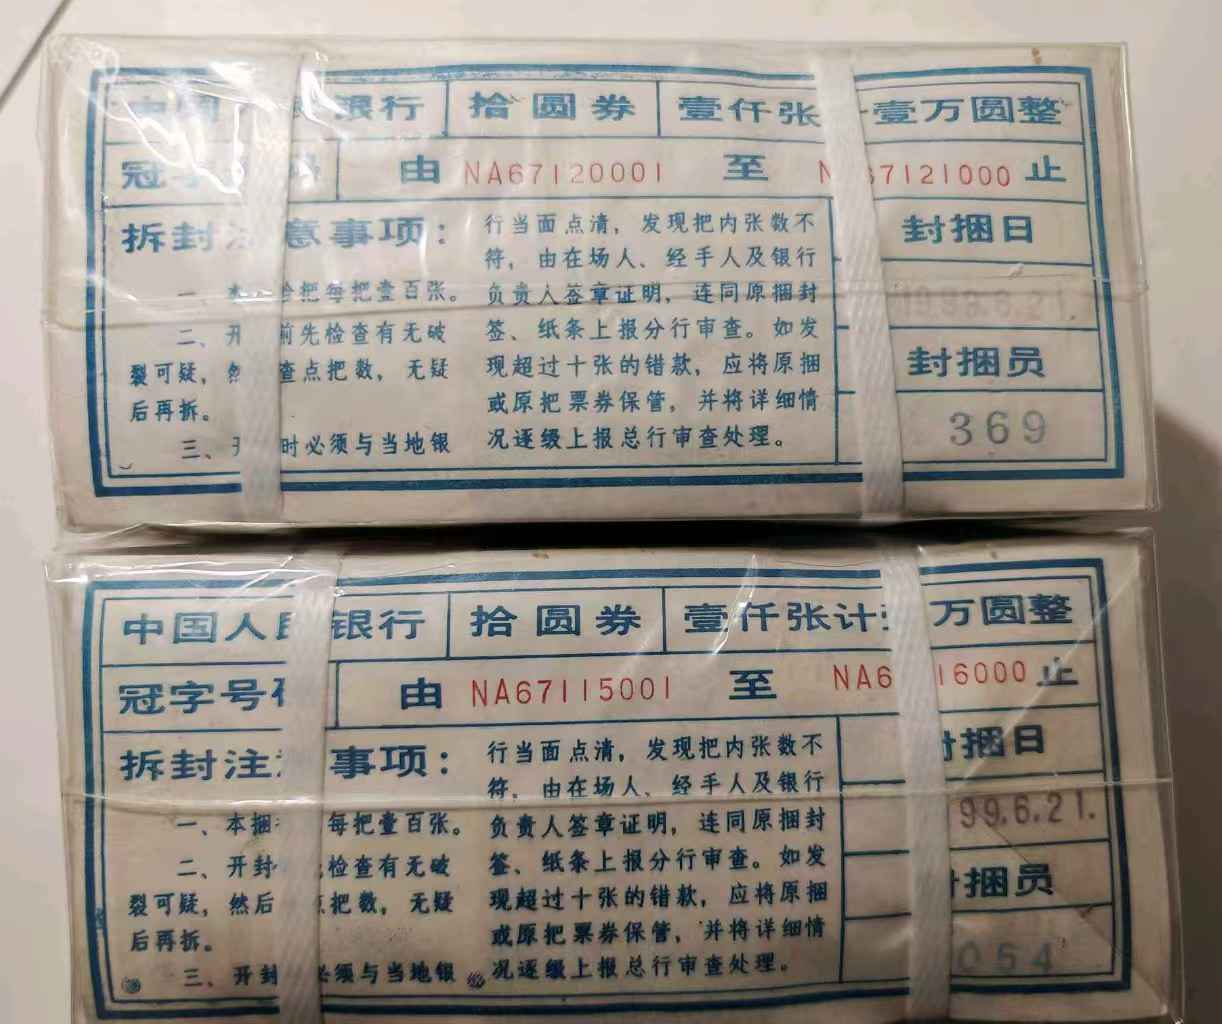 中国 银行 拾圆券 壹仟张 壹万圆整
冠字 号 由 NA67120001 至 N 67121000 止
拆封 意事项：
一、本 每把壹百张。
二、开 前先检查有无破
裂可疑，然 查点把数，无疑
后再拆。
三、开 时必须与当地银
行当面点清，发现把内张数不
符，由在场人、经手人及银行
负责人签章证明，连同原捆封
签、纸条上报分行审查。如发
现超过十张的错款，应将原捆
或原把票券保管，并将详细情
况逐级上报总行审查处理。
封捆日
1999.6.21.
封捆员
369
中国人民银行 拾圆券 壹仟张计 万圆整
冠字号 由 NA67115001 至 NA6 16000 止
拆封注 事项：
一、本捆 每把壹百张。
二、开封 检查有无破
裂可疑，然后 点把数，无疑
后再拆。
三、开封 必须与当地银
行当面点清，发现把内张数不
符，由在场人、经手人及银行
负责人签章证明，连同原捆封
签、纸条上报分行审查。如发
现超过十张的错款，应将原捆
或原把票券保管，并将详细情
况逐级上报总行审查处理。
封捆日
99.6.21.
捆员
054